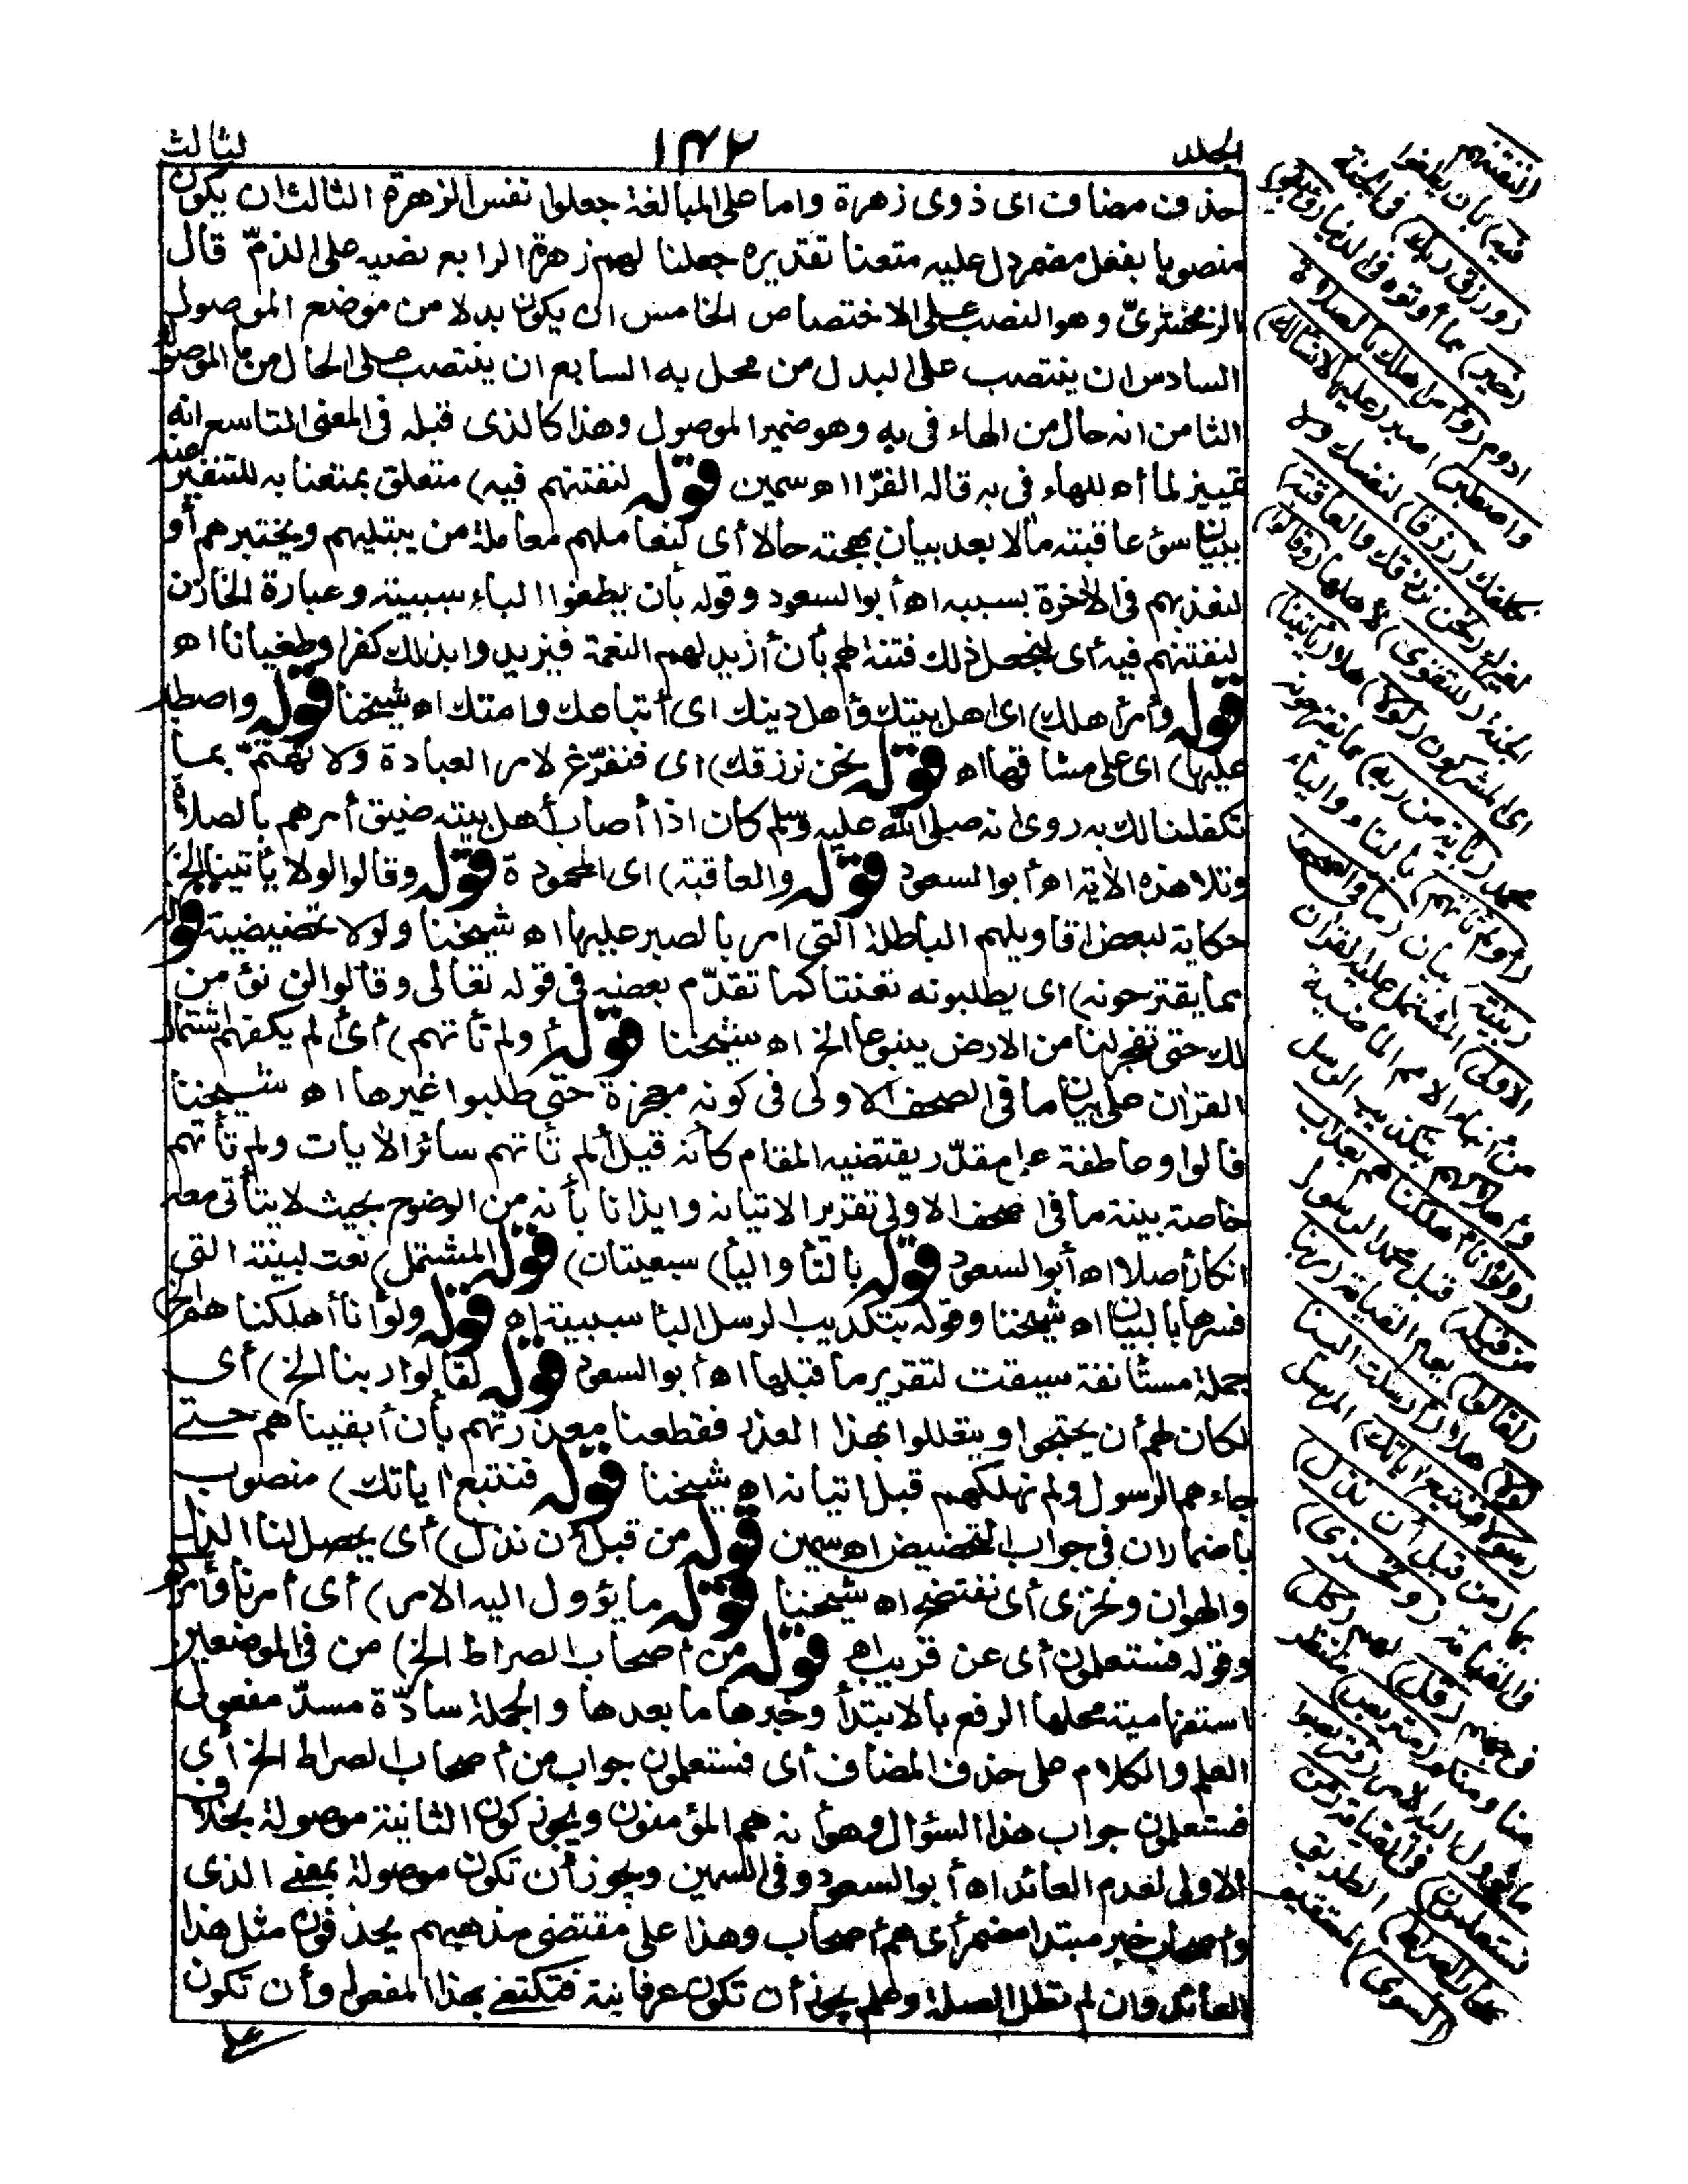 الجلد
١٤٢
لثالث
حذف مضاف اى ذوى زهرة واما على المبالغة جعلوا نفس الزهرة الثالث ان يكون
منصوبا بفعل مضمر دل عليه متعنا تقديره جعلنا لهم زهرة الرابع نصبه على الذمّ قال
الزمخشرىّ وهو النصب على الاختصاص الخامس ان يكون بدلا من موضع الموصول
السادس ان ينتصب على البدل من محل به السابع ان ينتصب على الحال من ما الموصولة
الثامن انه حال من الهاء فى به وهو ضمير الموصول وهذا كالذى قبله فى المعنى التاسع انه
تمييز لما أو للهاء فى به قاله الفرّا اه سمين قوله لنفتنهم فيه) متعلق بمتعنا به للتنفير عنه
ببيان سوء عاقبته مآلا بعد بيان بهجته حالا أى لنعاملهم معاملة من يبتليهم ويختبرهم أو
لنعذبهم فى الآخرة بسببه اه أبو السعود وقوله بأن يطغوا الباء سببية وعبارة الخازن
لنفتنهم فيه أى لنجعل ذلك فتنة لهم بأن أزيد لهم النعمة فيزيدوا بذلك كفرا وطغيانا اه
قوله وأمر أهلك) اى اهل بيتك وأهل دينك اى أتباعك وامتك اه شيخنا قوله واصطبر
عليها) اى على مشاقها اه قوله نحن نرزقك) اى فتفرّغ لامر العبادة ولا تهتمّ بما
تكفلنا لك به روى انه صلى الله عليه وسلم كان اذا أصاب أهل بيته ضيق أمرهم بالصلاة
وتلا هذه الآية اه أبو السعود قوله والعاقبة) اى المحمودة قوله وقالوا لولا يأتينا الخ)
حكاية لبعض اقاويلهم الباطلة التى امر بالصبر عليها اه شيخنا ولولا تحضيضية قوله
مما يقترحونه) اى يطلبونه تعنتا كما تقدّم بعضه فى قوله تعالى وقالوا لن نؤمن
لك حتى تفجر لنا من الارض ينبوعا الخ اه شيخنا قوله أولم تأتهم) أى ألم يكفهم اشتمال
القرآن على بيان ما فى الصحف الاولى فى كونه معجزة حتى طلبوا غيرها اه شيخنا
فالواو عاطفة على مقدّر يقتضيه المقام كأنه قيل ألم تأتهم سائر الآيات ولم تأتهم
خاصة بينة ما فى الصحف الاولى تقريرا لاتيانه وايذانا بأنه من الوضوح بحيث لا يتأتى معه
انكار أصلا اه أبو السعود قوله بالتا واليأ) سبعيتان) قوله المشتمل) نعت لبينة التى
فسرها بالبيان اه شيخنا وقوله بتكذيب الرسل البا سببية اه قوله ولو أنا أهلكناهم الخ)
جملة مستأنفة سيقت لتقرير ما قبلها اه أبو السعود قوله لقالوا ربنا الخ) أى
لكان لهم أن يحتجوا ويتعللوا بهذا العذر فقطعنا معذرتهم بأن أبقيناهم حتى
جاءهم الرسول ولم نهلكهم قبل اتيانه اه شيخنا قوله فنتبع آياتك) منصوب
باضمار ان فى جواب التحضيض اه سمين قوله من قبل أن نذل) أى يحصل لنا الذل
والهوان ونخزى أى نفتضح اه شيخنا قوله ما يؤول اليه الامر) أى أمرنا وأمركم
وقوله فستعلمون أى عن قريب اه قوله من أصحاب الصراط الخ) من فى الموضعين
استفهامية محلها الرفع بالابتدأ وخبرها ما بعدها والجملة سادّة مسدّ مفعولى
العلم والكلام على حذف المضاف أى فستعلمون جواب من أصحاب الصراط الخ أى
فستعلمون جواب هذا السؤال وهو أنه هم المؤمنون ويجوز كون الثانية موصولة بخلاف
الاولى لعدم العائد اه أبو السعود وفى السمين ويجوز أن تكون موصولة بمعنى الذى
وأصحاب خبر مبتدا مضمر أى هم أصحاب وهذا على مقتضى مذهبهم يحذفون مثل هذا
العائد وان لم تطل الصلة وعلم يجوز أن تكون عرفانية فتكتفى بهذا المفعول وأن تكون
على
(لنفتنهم
فيه) بأن يطغوا
(ورزق ربك) فى الجنة
(خير) مما أوتوه فى الدنيا (وأبقى)
ادوم (وأمر أهلك بالصلاة
واصطبر) اصبر (عليها لا نسألك)
نكلفك (رزقا) لنفسك ولا
لغيرك (نحن نرزقك والعاقبة)
الجنة (للتقوى) لأهلها (وقالوا)
اى المشركون (لولا) هلا (يأتينا)
محمد (بآية من ربه) مما يقترحونه
(أولم تأتهم) بالتاء والياء
(بينة) بيان (ما فى الصحف
الأولى) المشتمل عليه القرآن
من أنباء الامم الماضية
واهلاكهم بتكذيب الرسل
(ولو أنا أهلكناهم بعذاب
من قبله) قبل محمد الرسول
(لقالوا) يوم القيامة (ربنا
لولا) هلا (أرسلت الينا
رسولا فنتبع آياتك) المرسل
بها (من قبل أن نذل)
فى القيامة (ونخزى)
فى جهنم (قل) لهم (كل)
منا ومنكم (متربص) منتظر
ما يؤول اليه الامر (فتربصوا
فستعلمون) فى القيامة (من
أصحاب الصراط) الطريق
(السوى) المستقيم